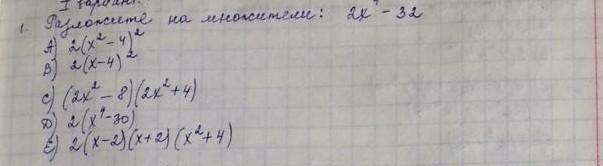 I вариант.
1. Разложите на множители: 2x⁴ - 32
A) 2(x² - 4)²
B) 2(x-4)²
C) (2x² - 8)(2x² + 4)
D) 2(x⁴-30)
E) 2(x-2)(x+2)(x²+4)